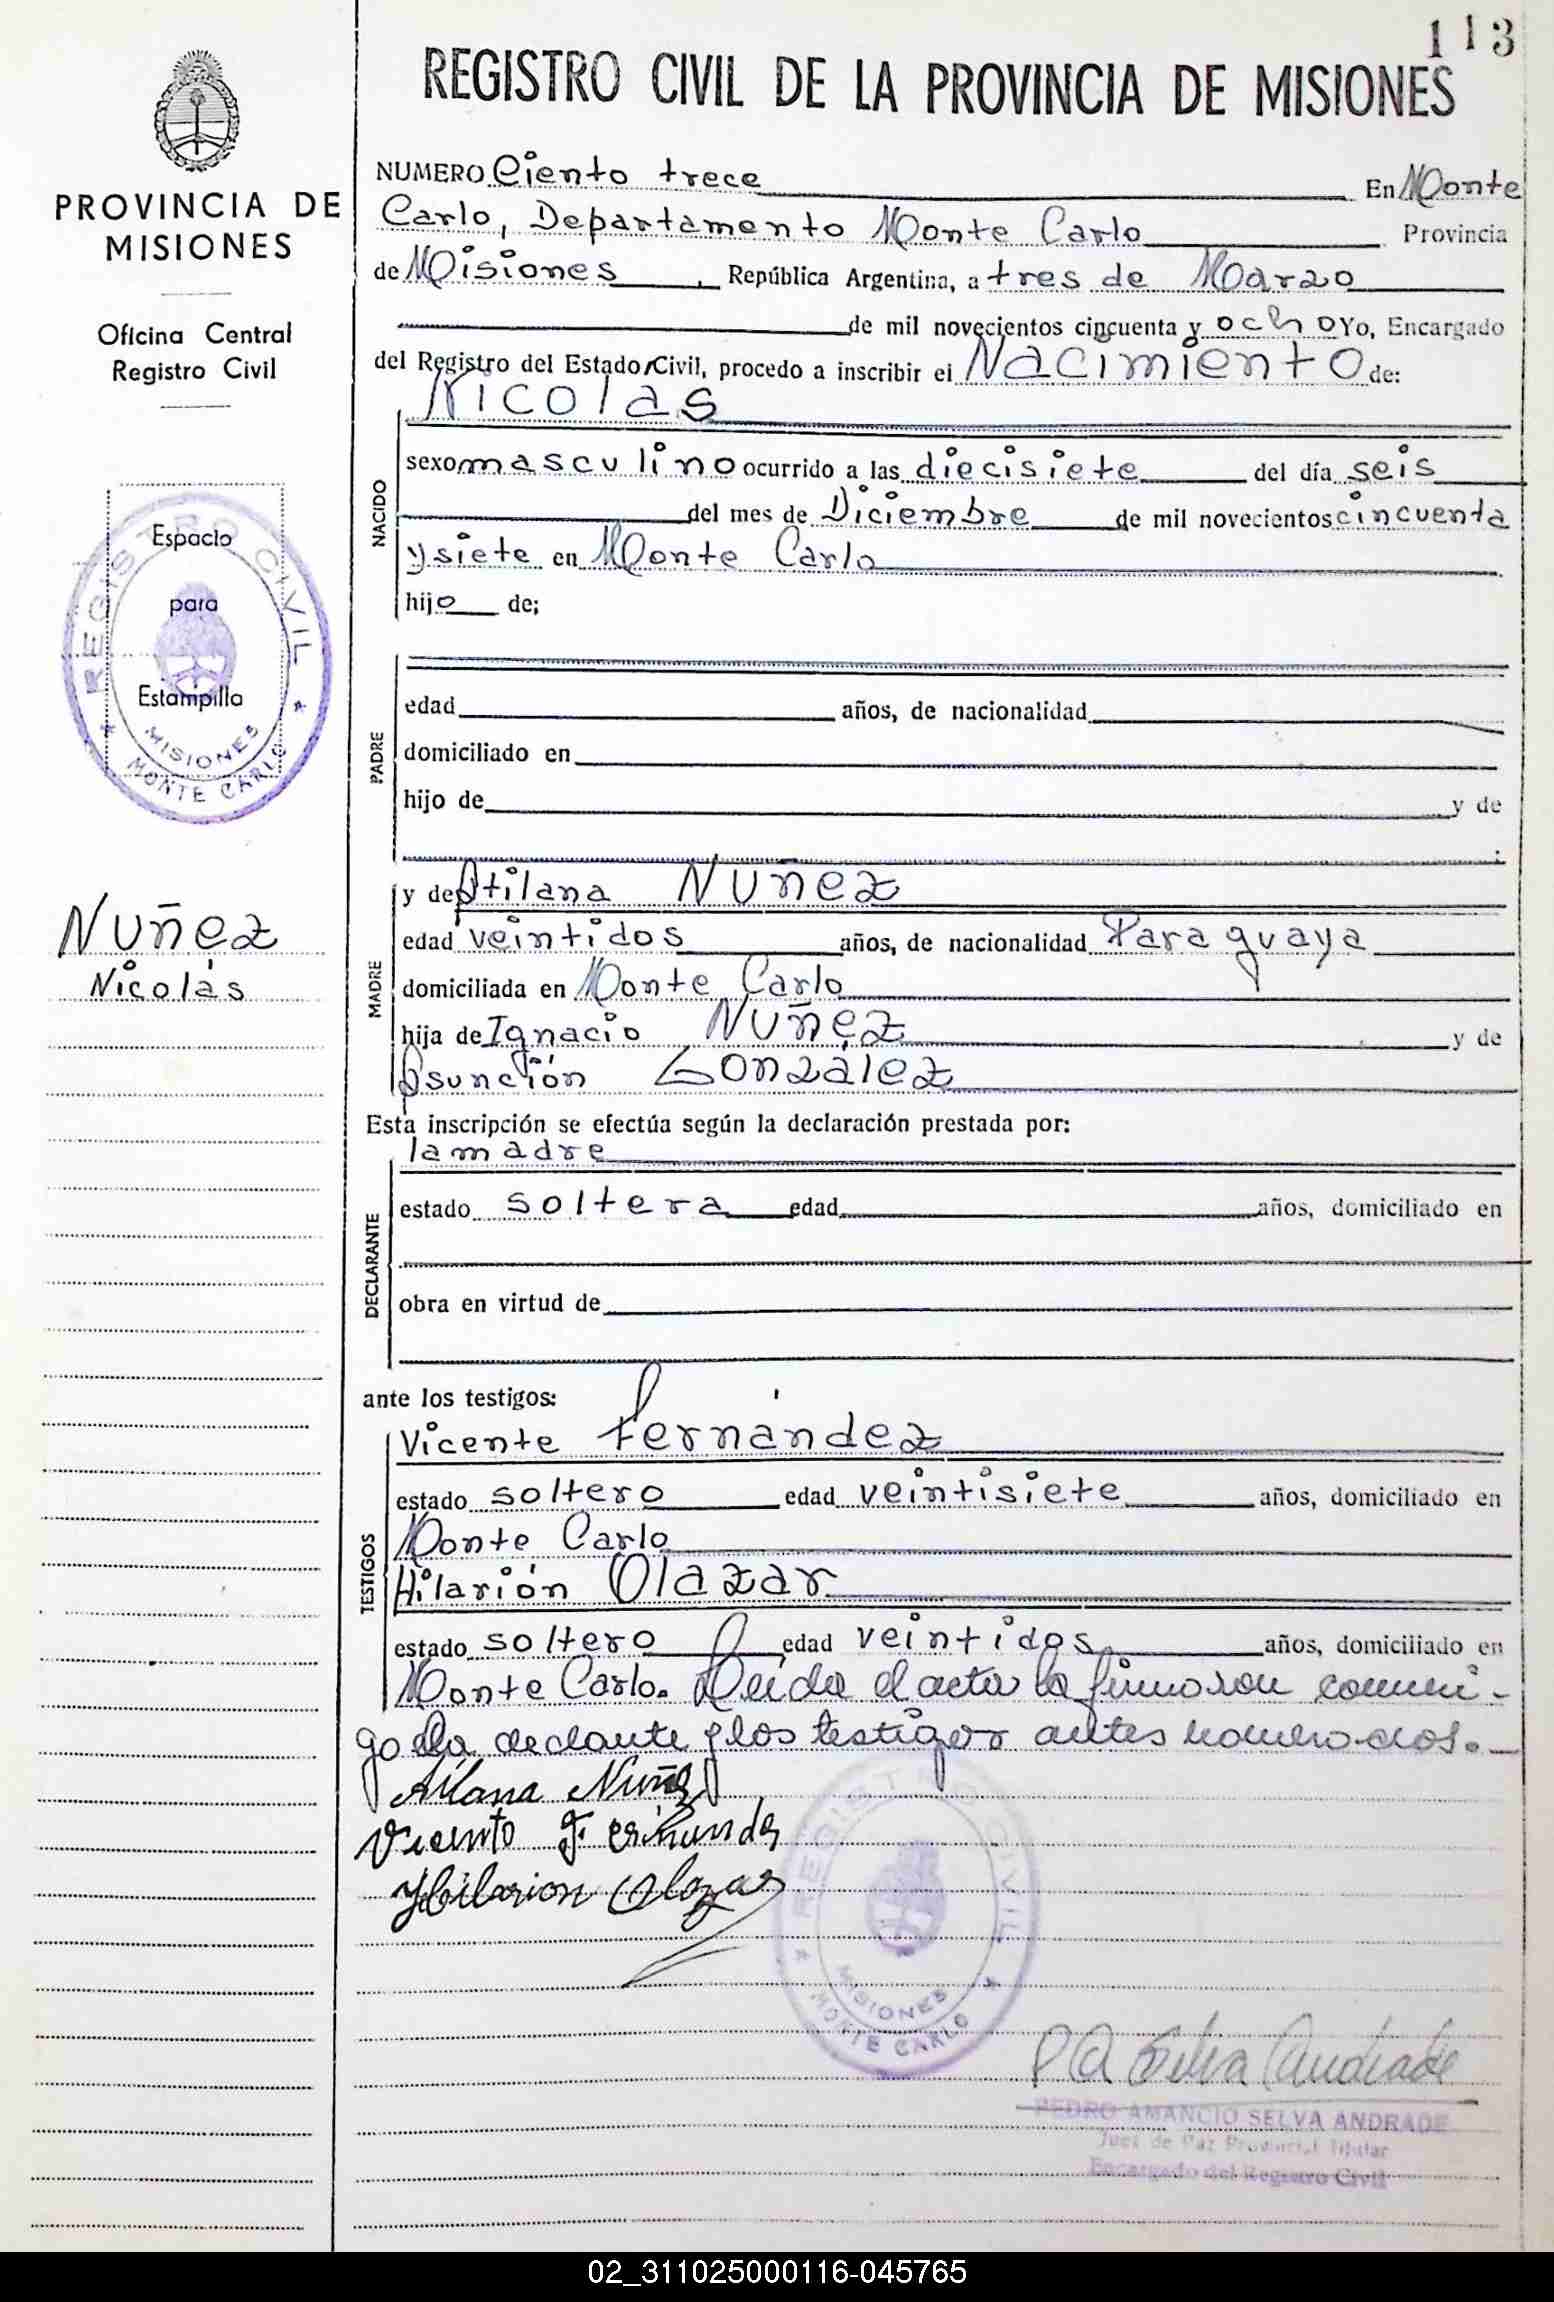 113
REGISTRO CIVIL DE LA PROVINCIA DE MISIONES
PROVINCIA DE
MISIONES
Oficina Central
Registro Civil
Espacio
para
Estampilla
REGISTRO CIVIL
MISIONES
MONTE CARLO
Nuñez
Nicolás
NUMERO Ciento trece En Monte
Carlo, Departamento Monte Carlo Provincia
de Misiones, República Argentina, a tres de Marzo
de mil novecientos cincuenta y ocho Yo, Encargado
del Registro del Estado Civil, procedo a inscribir el Nacimiento de:
NACIDO
Nicolas
sexo masculino ocurrido a las diecisiete del día seis
del mes de Diciembre de mil novecientos cincuenta
y siete en Monte Carlo
hijo de;
PADRE
edad años, de nacionalidad
domiciliado en
hijo de y de
MADRE
y de Atilana Nuñez
edad veintidos años, de nacionalidad Paraguaya
domiciliada en Monte Carlo
hija de Ignacio Nuñez y de
Asunción González
Esta inscripción se efectúa según la declaración prestada por:
DECLARANTE
la madre
estado soltera edad años, domiciliado en
obra en virtud de
ante los testigos:
TESTIGOS
Vicente Fernández
estado soltero edad veintisiete años, domiciliado en
Monte Carlo
Hilarión Olazar
estado soltero edad veintidos años, domiciliado en
Monte Carlo. Leida el acta la firmaron conmi-
go la declante y los testigos antes nombrados.
Atilana Nuñez
Vicente Fernandez
Hilarion Olazar
REGISTRO CIVIL
MISIONES
MONTE CARLO
P A Selva Andrade
PEDRO AMANCIO SELVA ANDRADE
Juez de Paz Provincial Titular
Encargado del Registro Civil
02_311025000116-045765